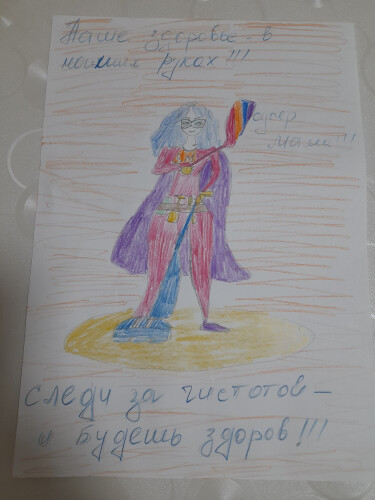 Наше здоровье - в
наших руках!!!
супер
мама!!!
следи за чистотой –
и будешь здоров!!!